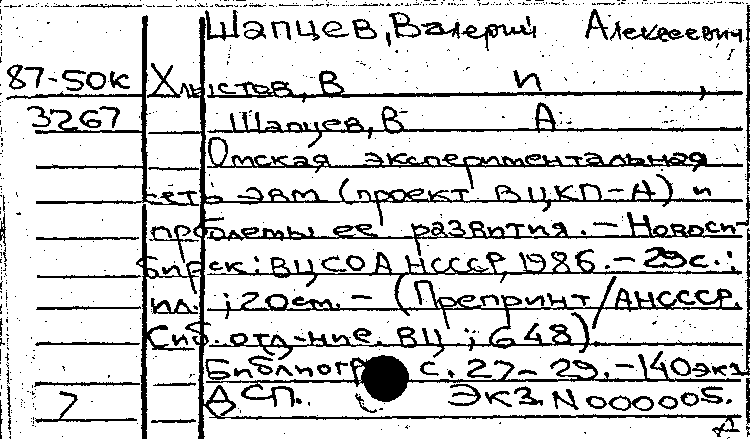 Шапцев, Валерий Алексеевич
87-50к Хлыстов, В П ,
3267 Шапцев, В А
Омская экспериментальная
сеть ЭВМ (проект ВЦКП-А) и
проблемы ее развития. - Новоси-
бирск: ВЦ СО АНСССР, 1986. - 29с.:
ил. ; 20см. - (Препринт/АНСССР.
Сиб. отд-ние. ВЦ ; 648).
Библиогр с. 27-29. - 140экз
7 ДСП. Экз. N 000005.